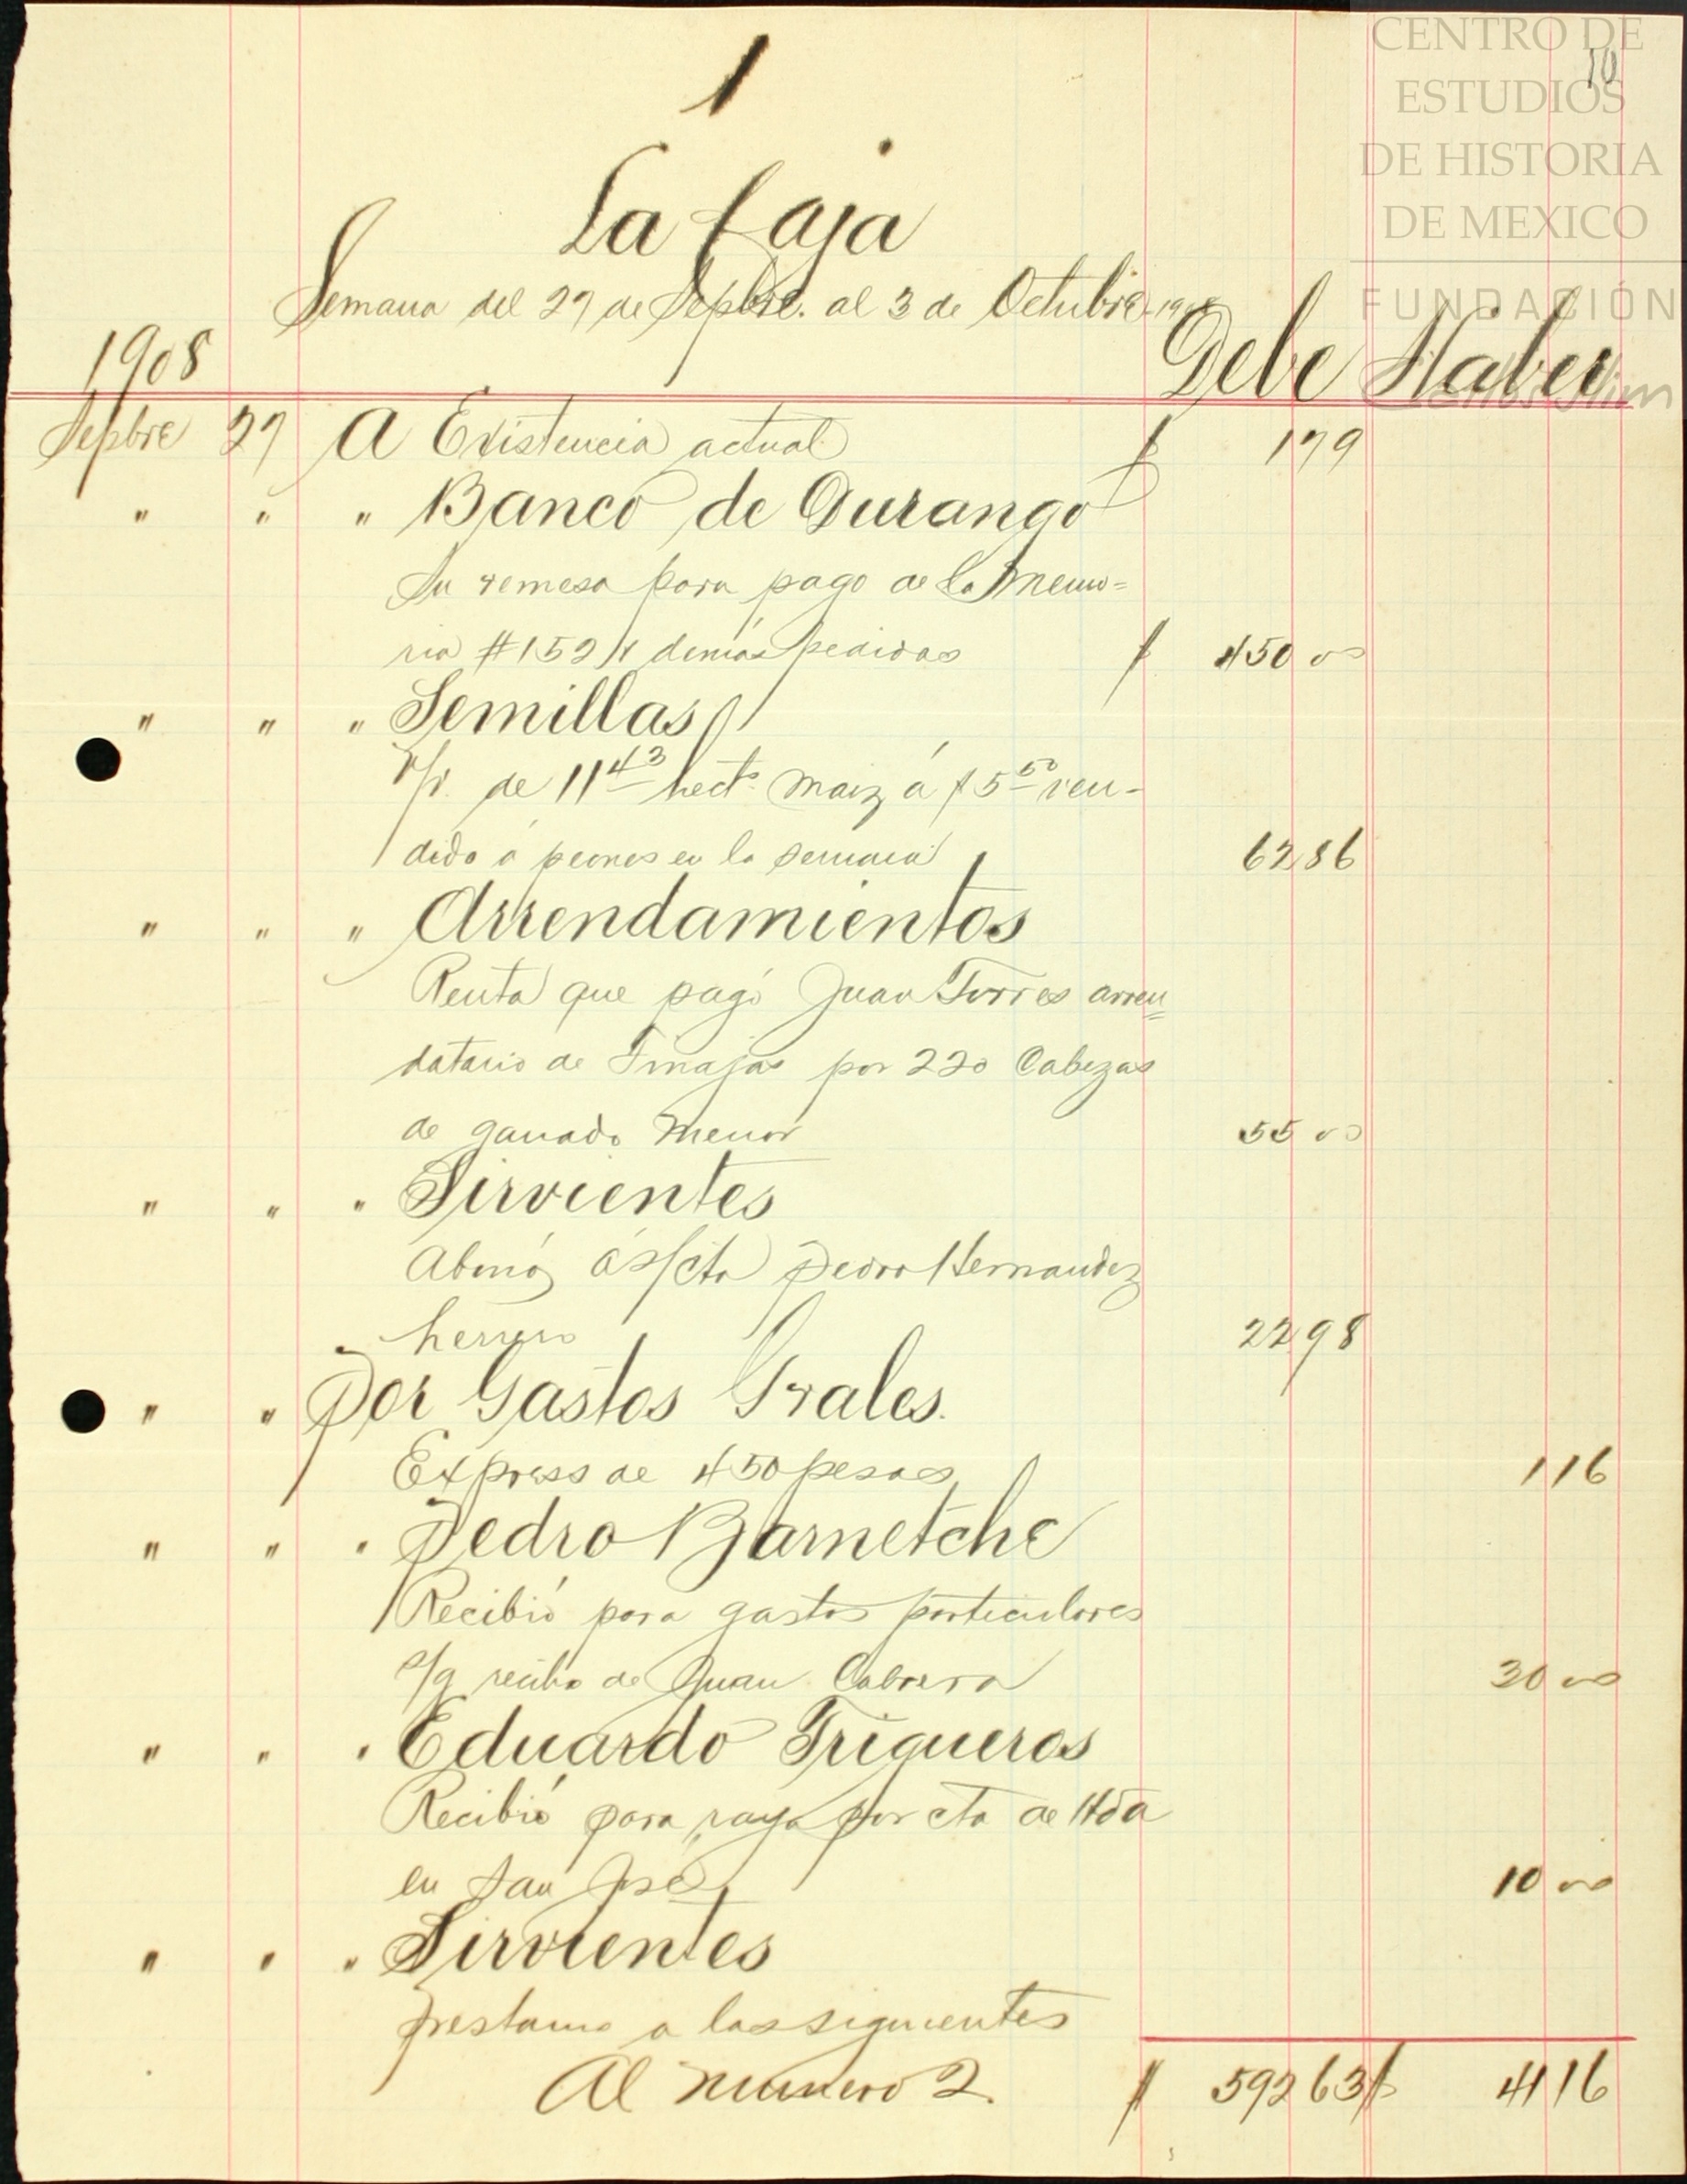 CENTRO DE
ESTUDIOS
DE HISTORIA
DE MEXICO
FUNDACIÓN
10
1
La Caja
Semana del 27 de Sepbre. al 3 de Octubre 1908
1908
Debe Haber
Sepbre 27 A Existencia actual $ 1 79
" " " Banco de Durango
Su remesa para pago de la Memo=
ria #152 y demás pedidos $ 450 00
" " " Semillas
V/. de 11 43 hects. maiz á $ 5 50 ven-
dido á peones en la semana 62 86
" " " Arrendamientos
Renta que pagó Juan Torres arren=
datario de Tinajas por 220 Cabezas
de ganado menor 55 00
" " " Sirvientes
Abonó á s/cta Pedro Hernandez
herrero 22 98
" " Por Gastos Grales.
Express de 450 pesos 1 16
" " " Pedro Barnetche
Recibió para gastos particulares
s/g recibo de Juan Cabrera 30 00
" " " Eduardo Trigueros
Recibió para raya por cta de Hda
en San José 10 00
" " " Sirvientes
Prestamo a los siguientes
Al numero 2. $ 592 63 $ 41 16